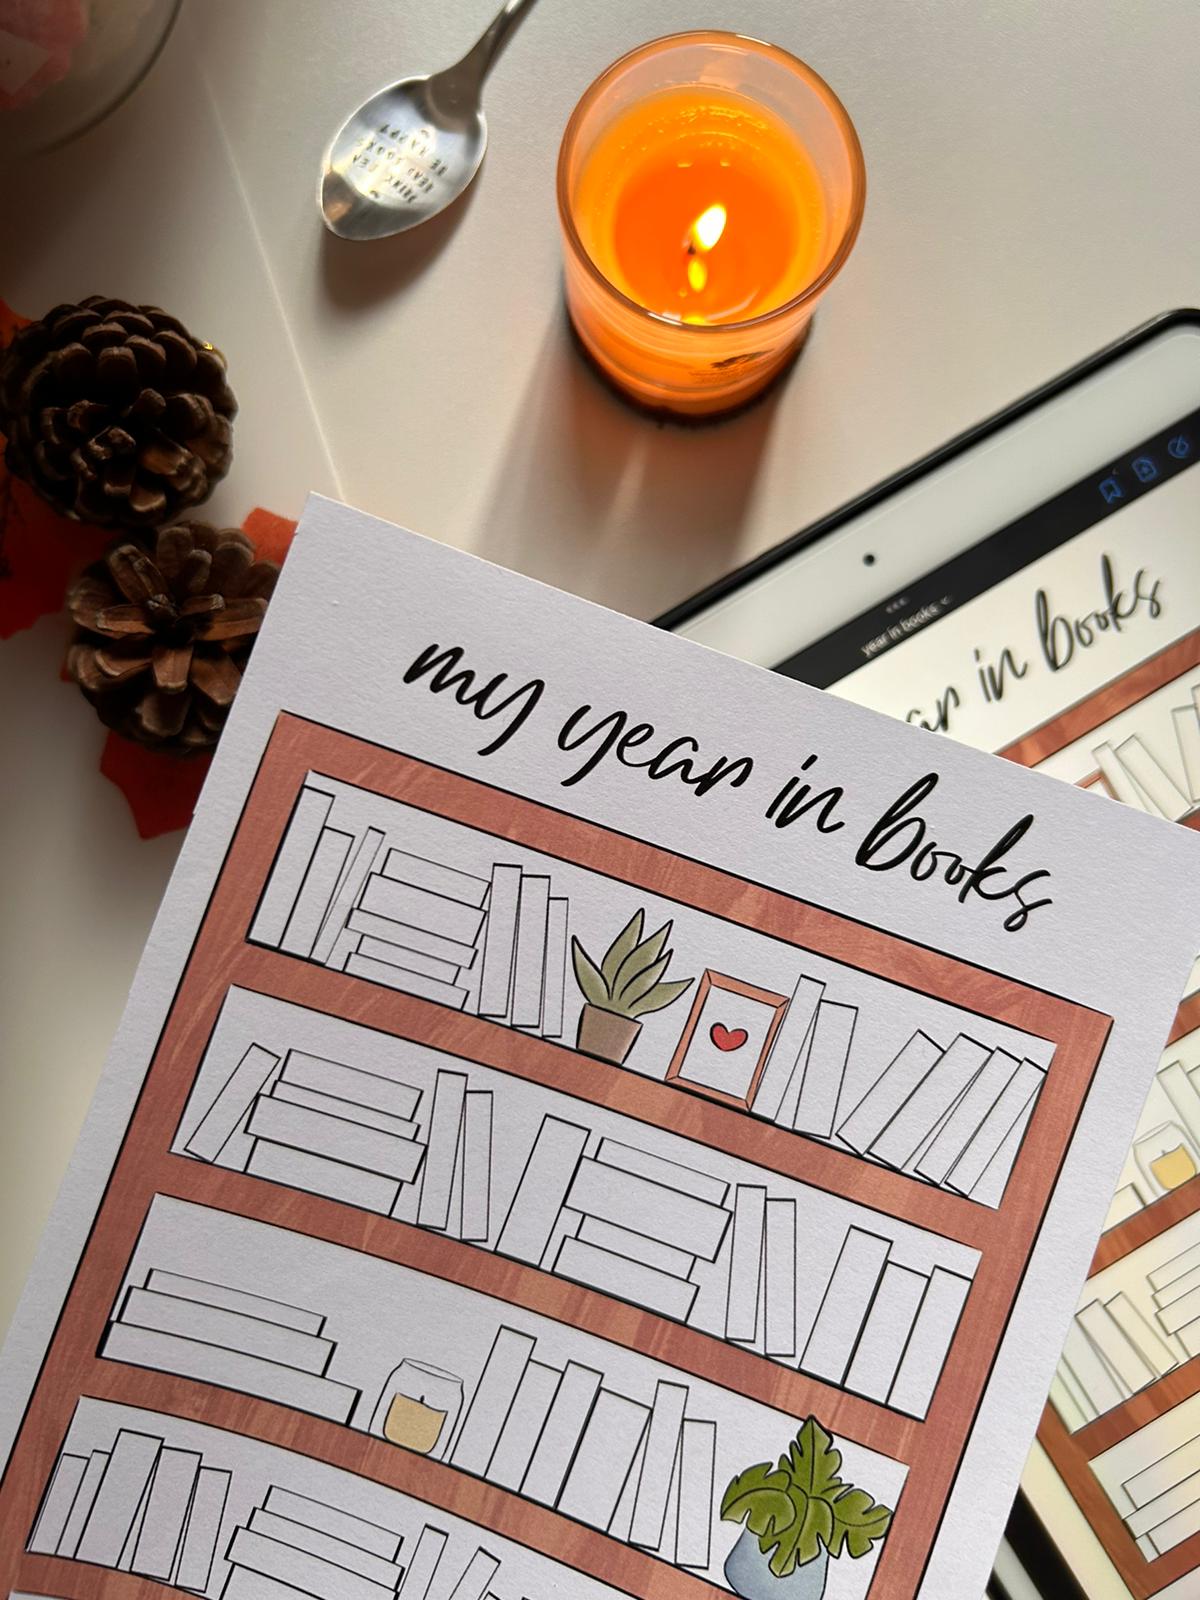 DRINK TEA
READ BOOKS
BE HAPPY
year in books
ar in books
my year in books